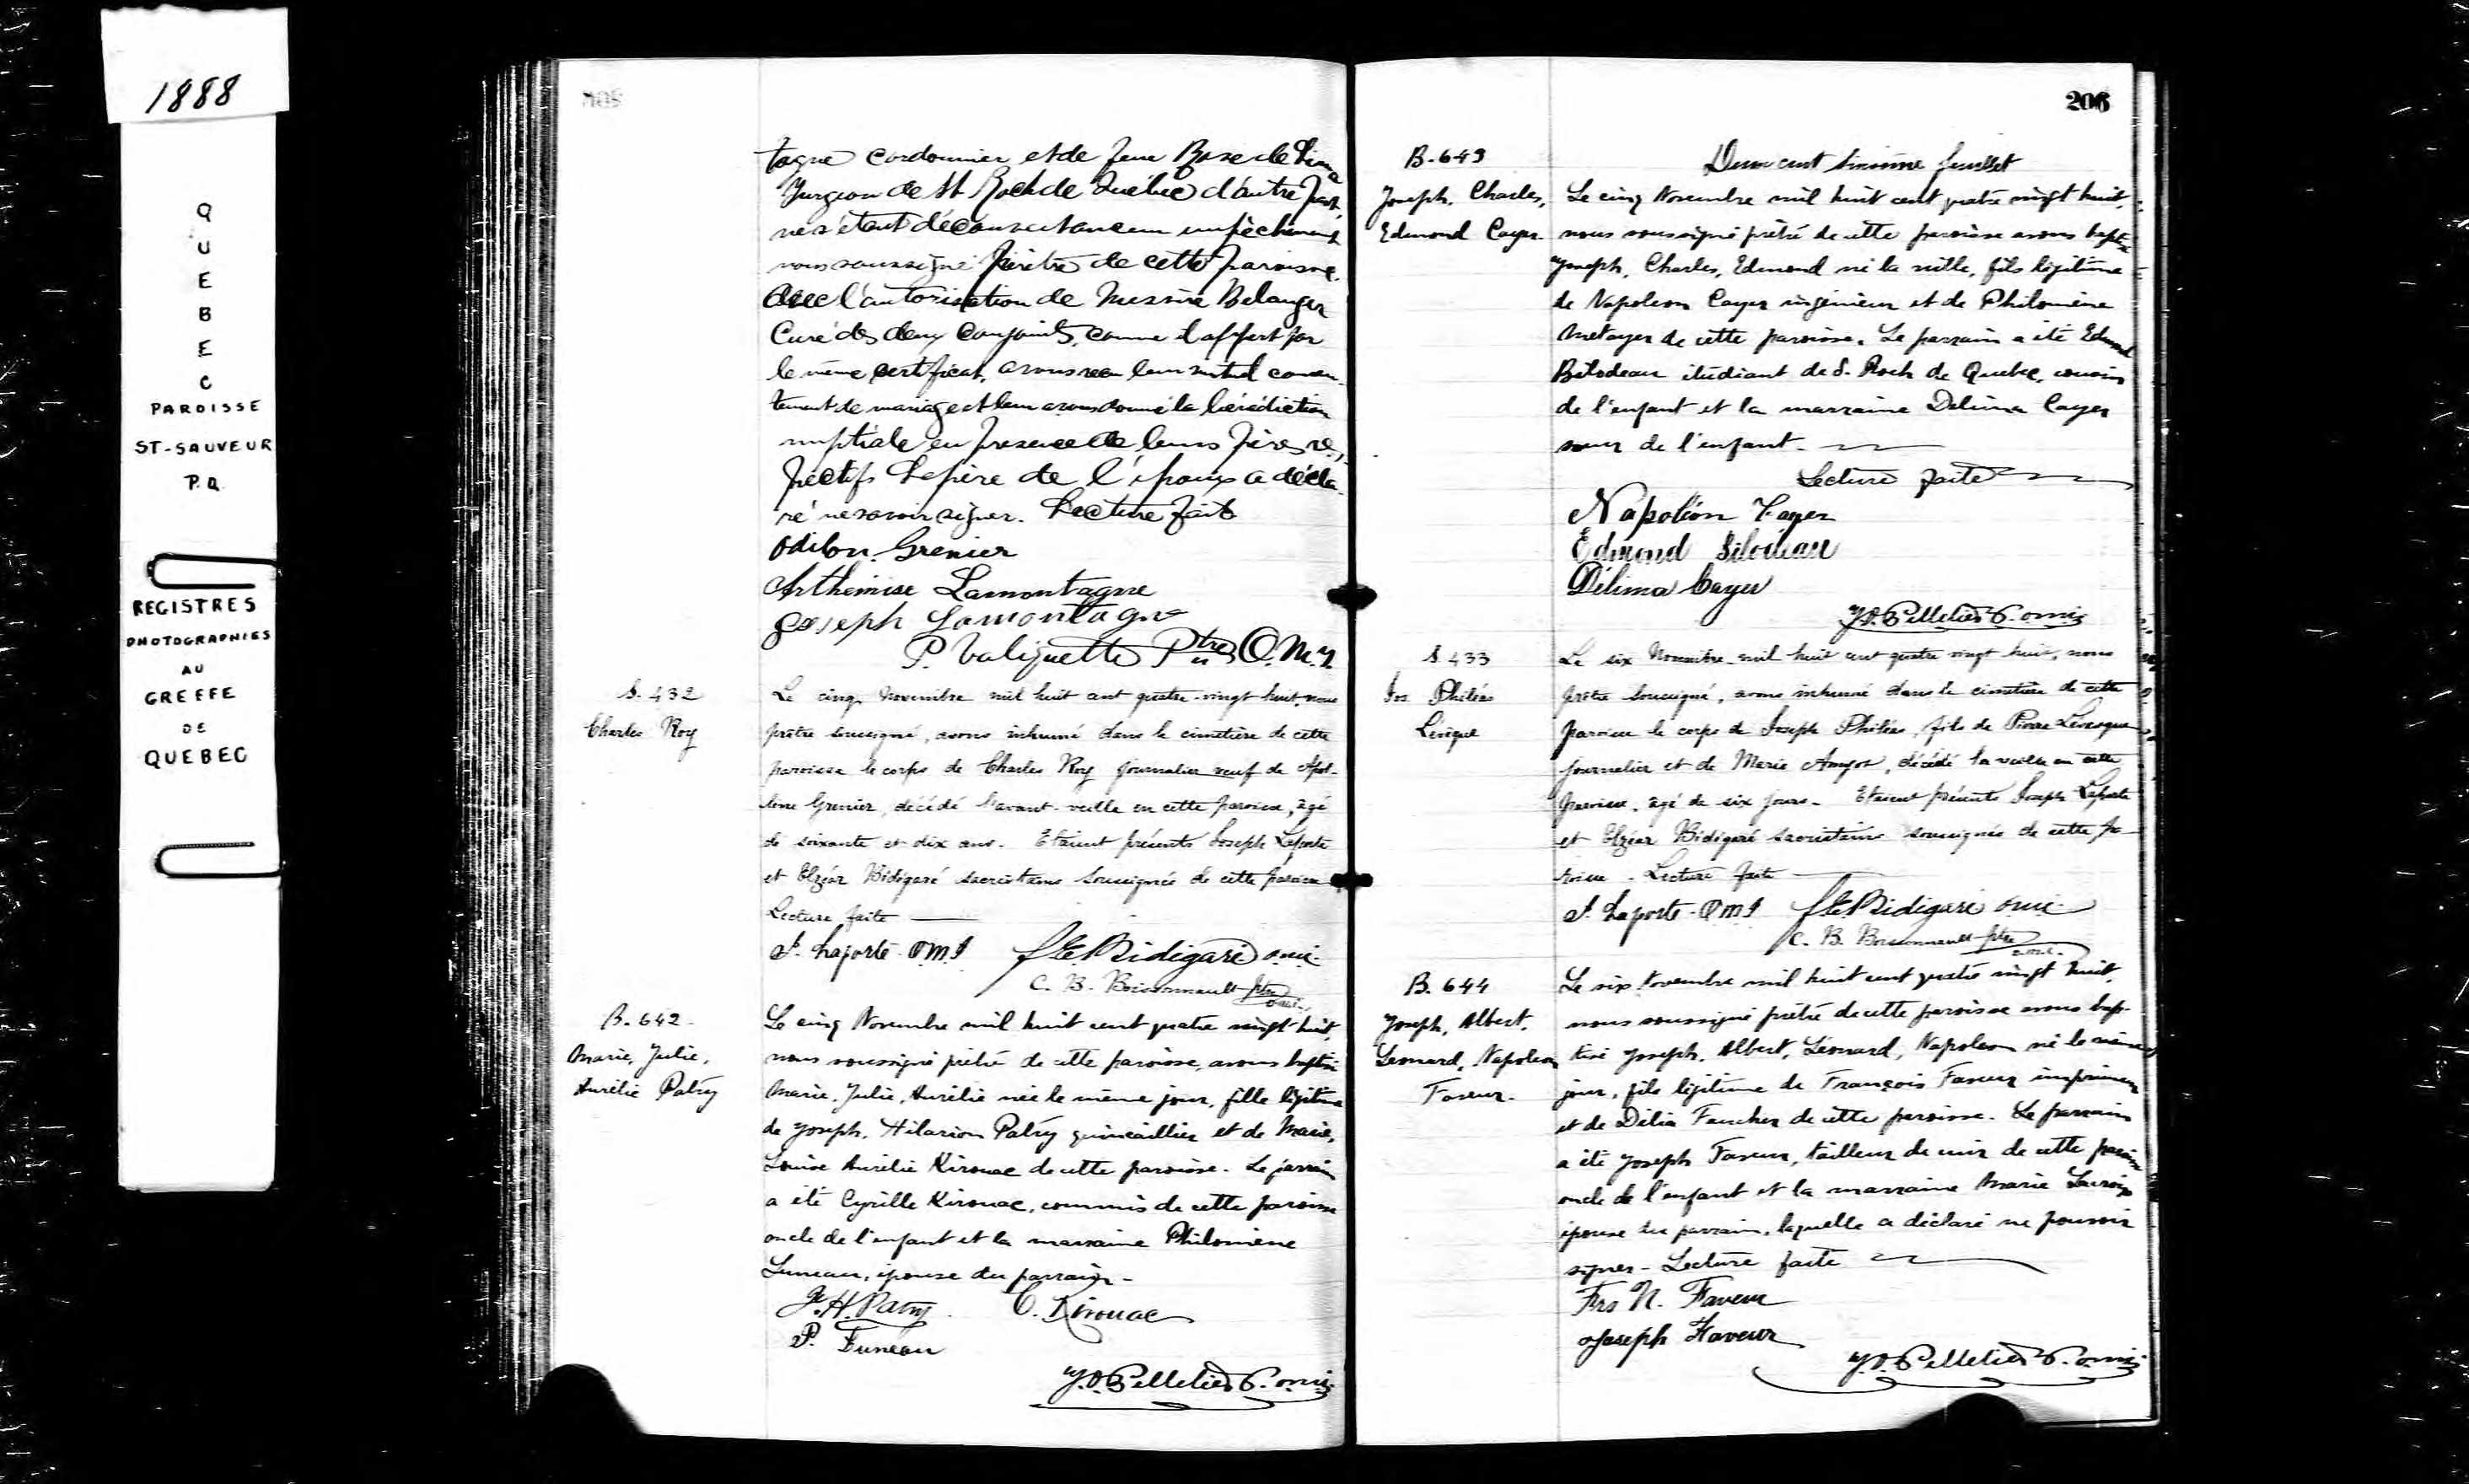 1888
Q
U
E
B
E
C
PAROISSE
ST-SAUVEUR
P.Q.
REGISTRES
PHOTOGRAPHIES
AU
GREFFE
DE
QUEBEC
tagne cordonnier et de feue Rose de Lima
Turgeon de St Roch de Québec d'autre part,
ne s'étant découvert aucun empêchement
nous soussigné Prêtre de cette paroisse.
Avec l'autorisation de Messire Belanger
Curé des deux conjoints, comme il appert par
le même certificat, avons reçu leur mutuel consen-
tement de mariage et leur avons donné la bénédiction
nuptiale en présence de leurs pères res-
pectifs Le père de l'époux a décla-
ré ne savoir signer. Lecture faite
Odilon Grenier
Arthemise Lamontagne
Joseph Lamontagne
P. Valiquette Ptre O.M.I.
S. 432
Charles Roy
Le cinq novembre mil huit cent quatre-vingt huit, nous
prêtre soussigné, avons inhumé dans le cimetière de cette
paroisse le corps de Charles Roy journalier veuf de Apol-
line Grenier, décédé l'avant-veille en cette paroisse, âgé
de soixante et dix ans. Etaient présents Joseph Laporte
et Elzéar Bédigaré sacristains soussignés de cette paroisse
Lecture faite
J. Laporte O.M.I. f. E. Bidigaré o.m.i.
C. B. Boissonnault ptre
o.m.i.
B. 642
Marie, Julie,
Aurélie Patry
Le cinq Novembre mil huit cent quatre vingt huit,
nous soussigné prêtre de cette paroisse, avons baptisé
Marie, Julie, Aurélie née le même jour, fille légitime
de Joseph, Hilarion Patry quincaillier et de Marie,
Louise Aurélie Kirouac de cette paroisse. Le parrain
a été Cyrille Kirouac, commis de cette paroisse
oncle de l'enfant et la marraine Philomène
Luneau, épouse du parrain -
J. H. Patry C. Kirouac
P. Luneau
J. D. Pelletier P. o.m.i.
206
Deux cent sixième feuillet
B-643
Joseph, Charles,
Edmond Cayer
Le cinq Novembre mil huit cent quatre vingt huit,
nous soussigné prêtre de cette paroisse avons baptisé
Joseph, Charles, Edmond né la veille, fils légitime
de Napoleon Cayer ingénieur et de Philomène
Métayer de cette paroisse. Le parrain a été Edmond
Bilodeau étudiant de S. Roch de Quebec, cousin
de l'enfant et la marraine Delima Cayer
sœur de l'enfant.
Lecture faite
Napoléon Cayer
Edmond Bilodeau
Délima Cayer
J. D. Pelletier P. o.m.i.
S. 433
Jos. Philéas
Lévêque
Le six Novembre mil huit cent quatre vingt huit, nous
prêtre soussigné, avons inhumé dans le cimetière de cette
paroisse le corps de Joseph Philéas, fils de Pierre Levesque
journalier et de Marie Amyot, décédé la veille en cette
paroisse, âgé de six jours. Etaient présents Joseph Laporte
et Elzéar Bédigaré sacristains soussignés de cette pa-
roisse. Lecture faite
J. Laporte O.M.I. f. E. Bidigaré o.m.i.
C. B. Boissonnault ptre
o.m.i.
B. 644
Joseph, Albert,
Léonard, Napoléon
Faveur.
Le six Novembre mil huit cent quatre vingt huit,
nous soussigné prêtre de cette paroisse avons bap-
tisé Joseph, Albert, Léonard, Napoléon né le même
jour, fils légitime de François Faveur imprimeur
et de Délia Faucher de cette paroisse. Le parrain
a été Joseph Faveur, tailleur de cuir de cette paroisse
oncle de l'enfant et la marraine Marie Lacroix
épouse du parrain, laquelle a déclaré ne pouvoir
signer - Lecture faite
Frs N. Faveur
Joseph Faveur
J. D. Pelletier P. o.m.i.